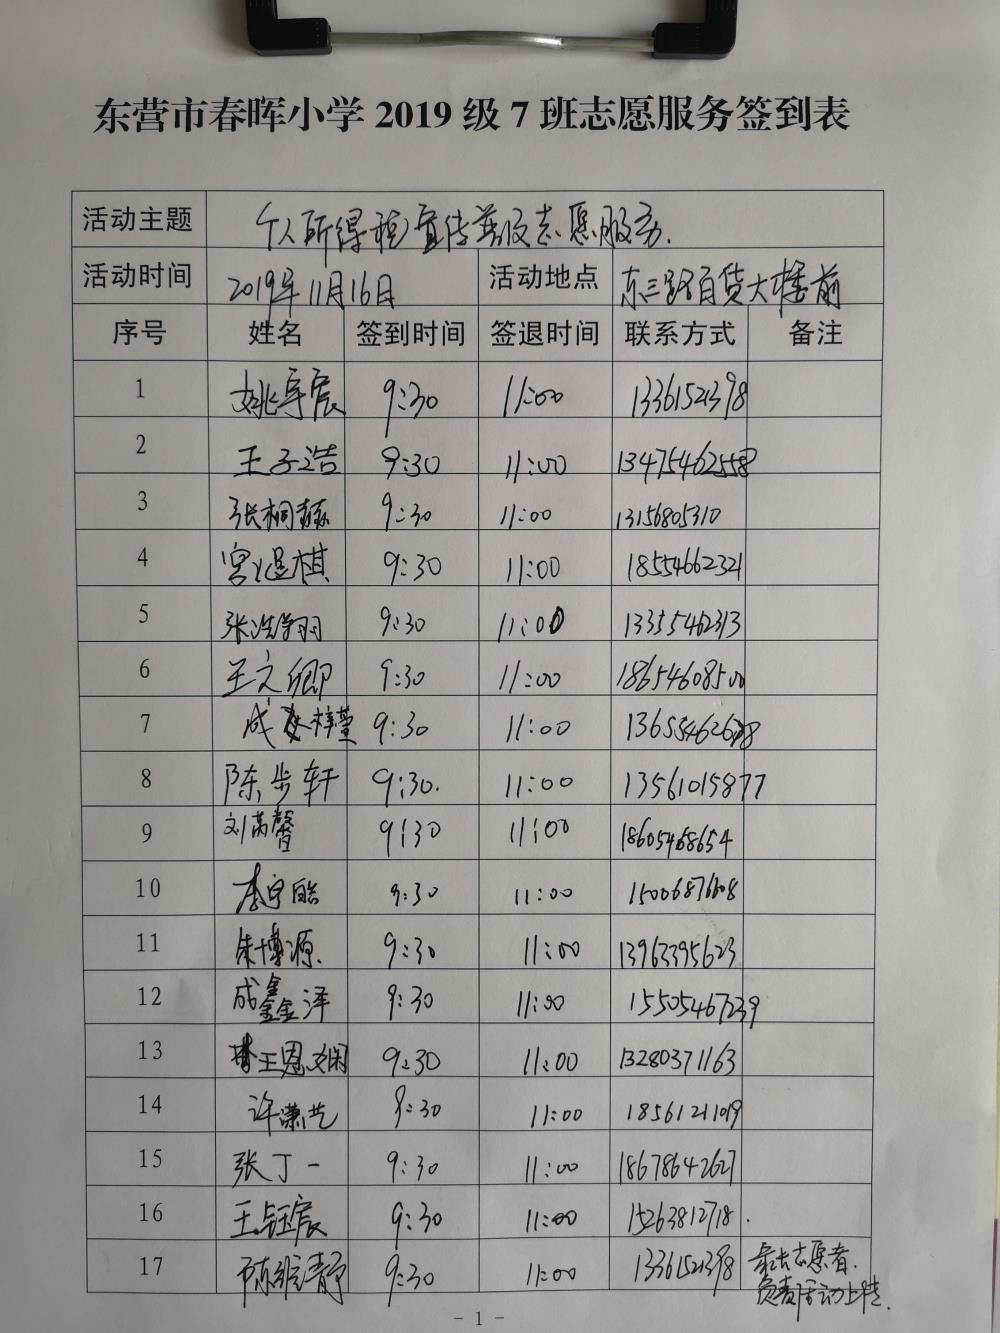 东营市春晖小学2019级7班志愿服务签到表
活动主题 个人所得税宣传普及志愿服务.
活动时间 2019年11月16日 活动地点 东三路百货大楼前
序号 姓名 签到时间 签退时间 联系方式 备注
1 姚宇宸 9:30 11:00 13361521398
2 王子浩 9:30 11:00 13475462558
3 张桐赫 9:30 11:00 13156805310
4 宫煜棋 9:30 11:00 18554662321
5 张浩翔 9:30 11:00 13355462313
6 王文卿 9:30 11:00 18654608500
7 成梓萱 9:30 11:00
8 陈步轩 9:30. 11:00 13561015877
9 刘芮馨 9:30 11:00 18605468654
10 李宇皓 9:30 11:00 15006876608
11 朱博源. 9:30 11:00 13963395623
12 成鑫泽 9:30 11:00 15505467239
13 王恩娴 9:30 11:00 13280371163
14 许潇艺 9:30 11:00 18561211019
15 张丁一 9:30 11:00 18678642627
16 王钰宸 9:30 11:00 15263812718.
17 陈维静 9:30 11:00 13361521398 家长志愿者.
负责活动上传.
- 1 -